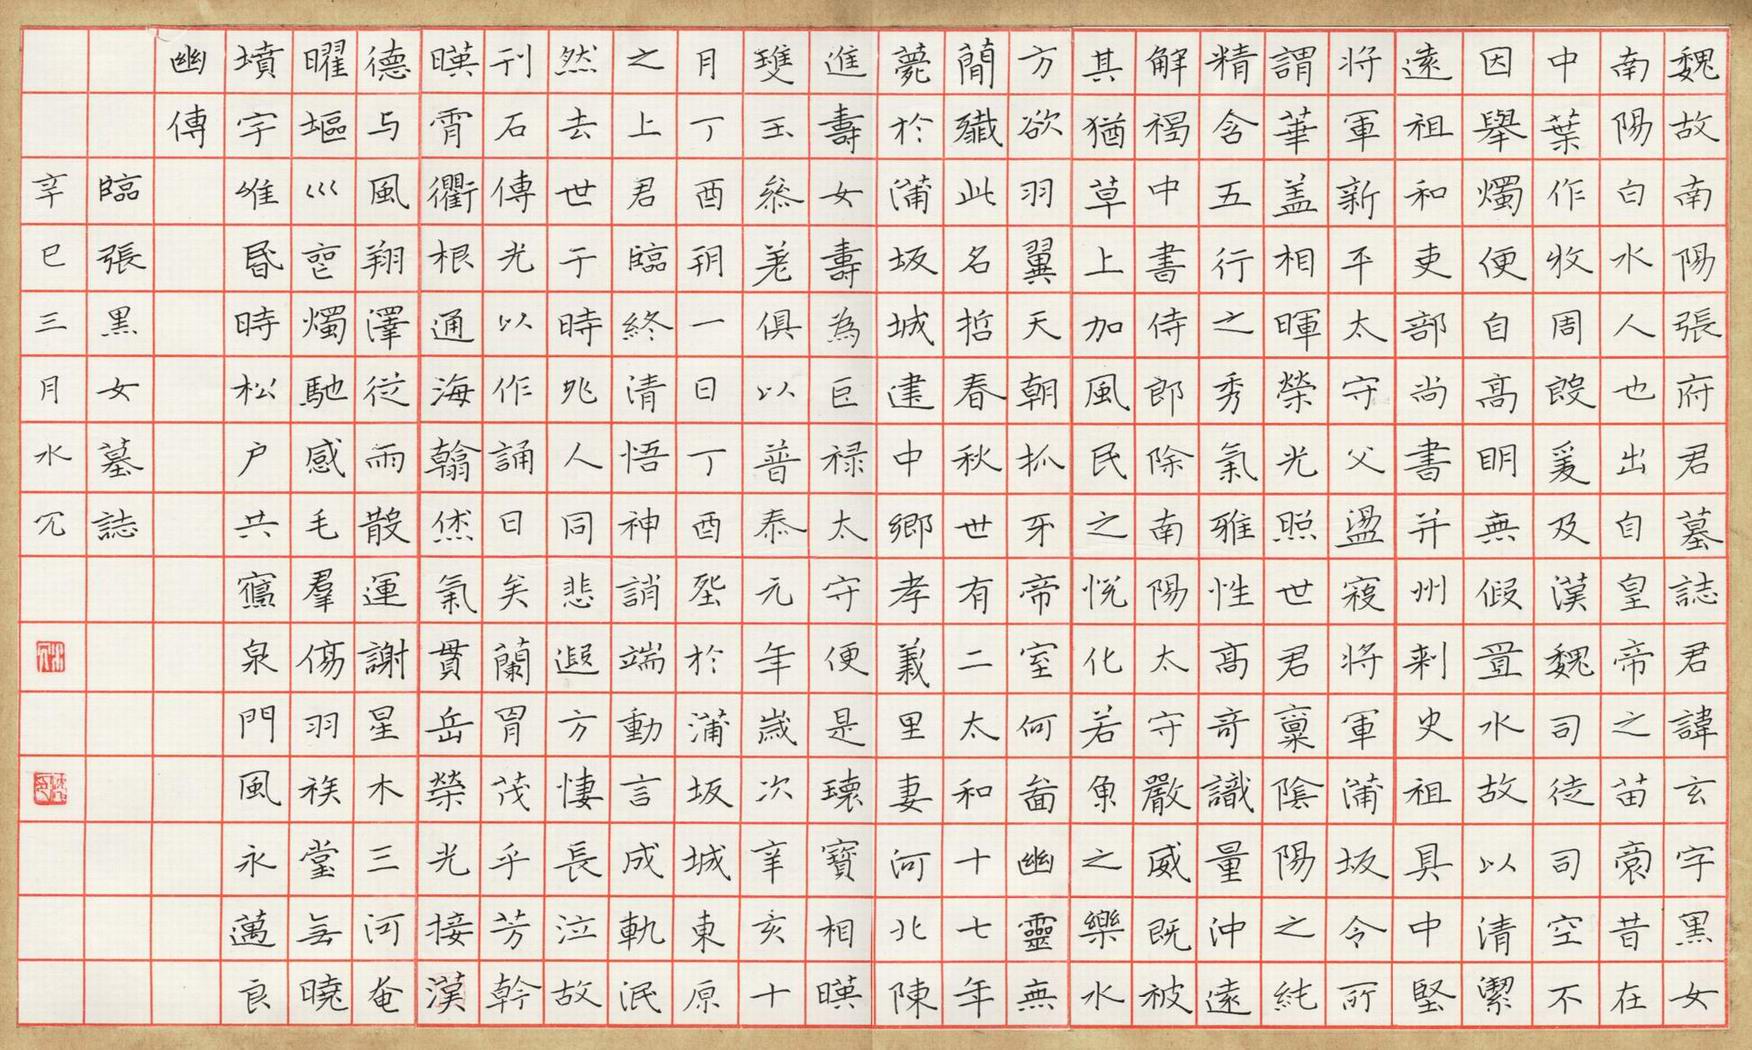 魏故南陽張府君墓誌君諱玄字黑女
南陽白水人也出自皇帝之苗裔昔在
中葉作牧周殷爰及漢魏司徒司空不
因舉燭便自高明無假置水故以清潔
遠祖和吏部尚書并州刾史祖具中堅
将軍新平太守父盪寇将軍蒲坂令所
謂華盖相暉榮光照世君稟陰陽之純
精含五行之秀氣雅性高奇識量沖遠
解褐中書侍郎除南陽太守嚴威既被
其猶草上加風民之悅化若魚之樂水
方欲羽翼天朝抓牙帝室何啚幽靈無
簡殲此名哲春秋世有二太和十七年
薨於蒲坂城建中鄉孝義里妻河北陳
進壽女壽為巨禄太守便是瓌寶相暎
雙玉叅差俱以普泰元年歲次辛亥十
月丁酉朔一日丁酉塟於蒲坂城東原
之上君臨終清悟神誚端動言成軌泯
然去世于時兆人同悲遐方悽長泣故
刊石傳光以作誦曰矣蘭冑茂乎芳幹
暎霄衢根通海翰倐氣貫岳榮光接漢
德与風翔澤從雨散運謝星木三河奄
曜塸巛喪燭馳感毛羣傷羽族堂無曉
墳宇唯昏時松户共寢泉門風永萬良
幽傳
臨張黑女墓誌
辛巳三月水冗